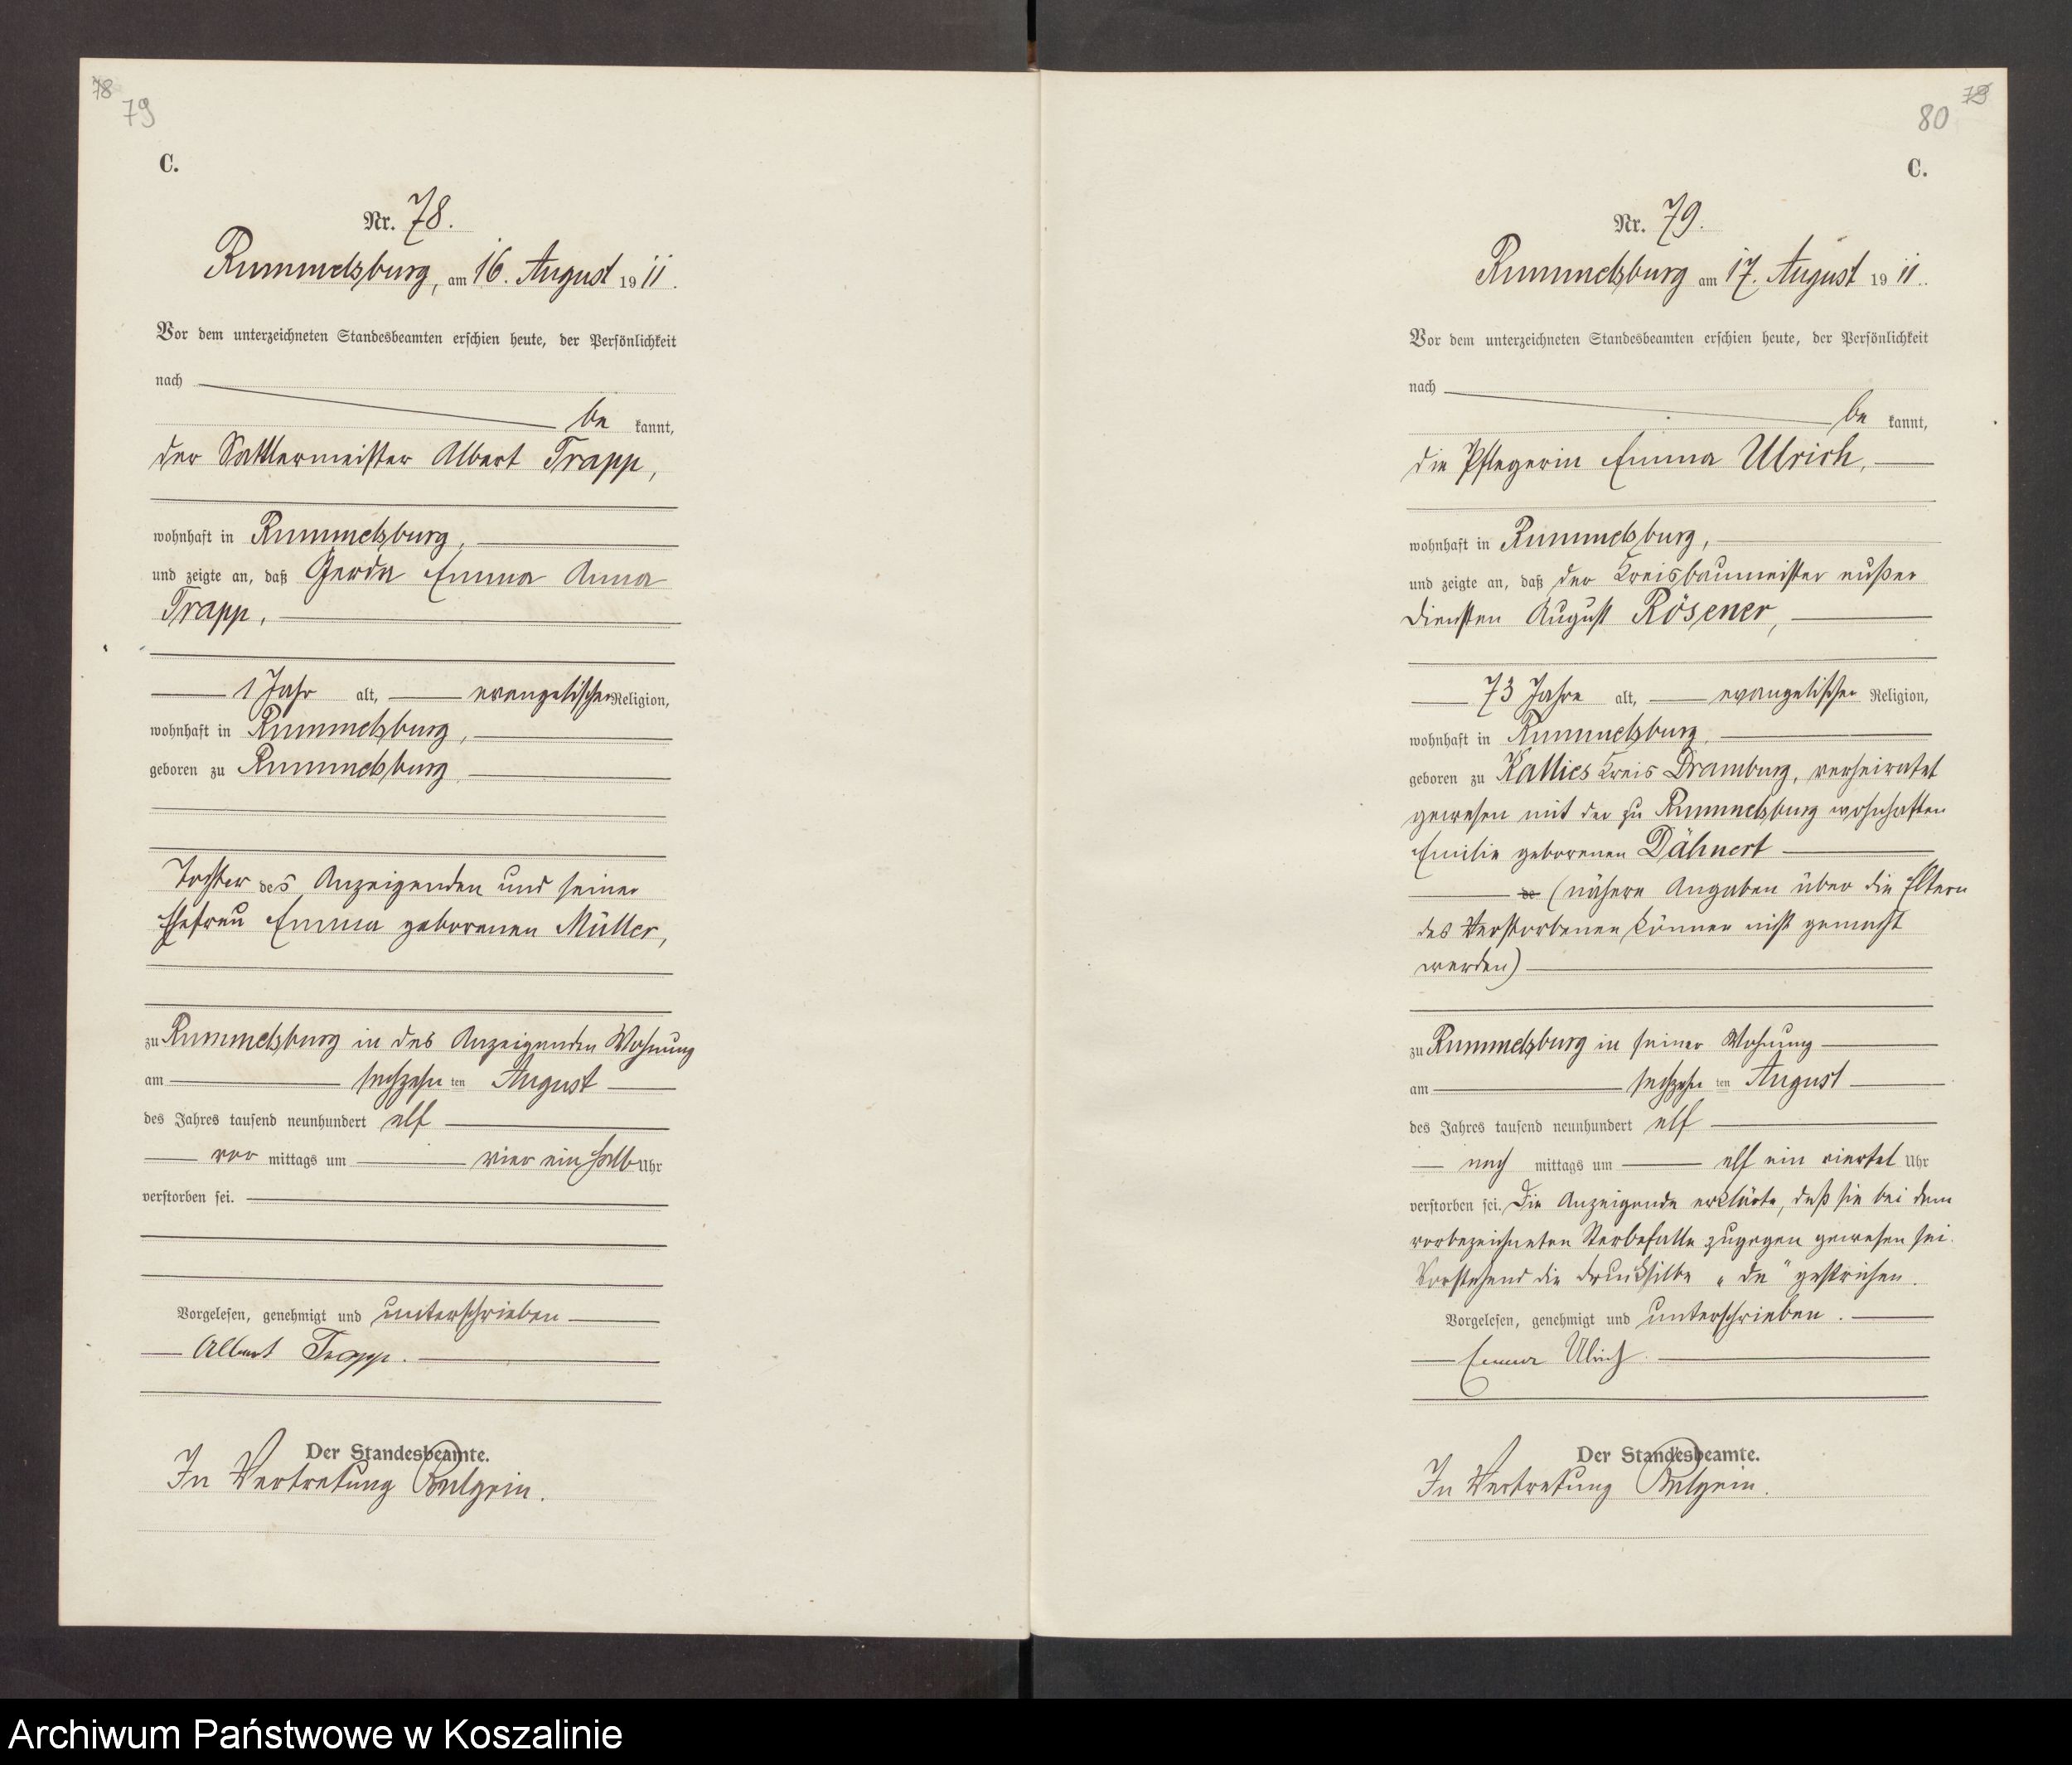 78
79
C.
Nr. 78.
Rummelsburg, am 16. August 1911.
Vor dem unterzeichneten Standesbeamten erschien heute, der Persönlichkeit
nach
be kannt,
der Sattlermeister Albert Trapp,
wohnhaft in Rummelsburg,
und zeigte an, daß Gerda Emma Anna
Trapp,
1 Jahr alt, evangelischer Religion,
wohnhaft in Rummelsburg,
geboren zu Rummelsburg,
Tochter des Anzeigenden und seiner
Ehefrau Emma geborenen Müller,
zu Rummelsburg in des Anzeigenden Wohnung
am sechzehn ten August
des Jahres tausend neunhundert elf
vor mittags um vier ein halb Uhr
verstorben sei.
Vorgelesen, genehmigt und unterschrieben
Albert Trapp.
Der Standesbeamte.
In Vertretung
79
80
C.
Nr. 79.
Rummelsburg am 17. August 1911.
Vor dem unterzeichneten Standesbeamten erschien heute, der Persönlichkeit
nach
be kannt,
die Pflegerin Emma Ulrich,
wohnhaft in Rummelsburg,
und zeigte an, daß der Kreisbaumeister außer
Diensten August Rösener,
73 Jahre alt, evangelischer Religion,
wohnhaft in Rummelsburg,
geboren zu Kallies Kreis Dramburg, verheiratet
gewesen mit der zu Rummelsburg wohnhaften
Emilie geborenen Dähnert
de (nähere Angaben über die Eltern
des Verstorbenen können nicht gemacht
werden)
zu Rummelsburg in seiner Wohnung
am sechzehn ten August
des Jahres tausend neunhundert elf
nach mittags um elf ein viertel Uhr
verstorben sei. Die Anzeigende erklärte, daß sie bei dem
vorbezeichneten Sterbefalle zugegen gewesen sei.
Vorstehend die Drucksilbe „de" gestrichen.
Vorgelesen, genehmigt und unterschrieben.
Emma Ulrich.
Der Standesbeamte.
In Vertretung
Archiwum Państwowe w Koszalinie